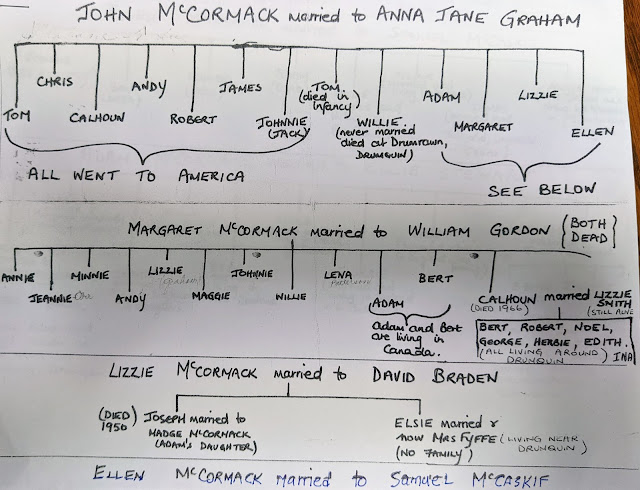 JOHN McCORMACK married to ANNA JANE GRAHAM
TOM
CHRIS
CALHOUN
ANDY
ROBERT
JAMES
JOHNNIE
(JACK)
TOM
(died in
Infancy)
WILLIE
(never married
died at Drumrawn,
DRUMQUIN)
ADAM
MARGARET
LIZZIE
ELLEN
ALL WENT TO AMERICA
SEE BELOW
MARGARET McCORMACK married to WILLIAM GORDON (BOTH
DEAD)
ANNIE
JEANNIE
MINNIE
ANDY
LIZZIE
MAGGIE
JOHNNIE
WILLIE
LENA
ADAM
BERT
Adam and Bert
are living in
Canada.
CALHOUN married LIZZIE
SMITH
(DIED 1966)
(STILL ALIVE
BERT, ROBERT, NOEL,
GEORGE, HERBIE, EDITH.
(ALL LIVING AROUND) INA
DRUMQUIN
LIZZIE McCORMACK married to DAVID BRADEN
(DIED)
1950
JOSEPH married to
MADGE McCORMACK
(ADAM'S DAUGHTER)
ELSIE married &
now MRS FYFFE (LIVING NEAR
DRUMQUIN)
(NO FAMILY)
ELLEN McCORMACK married to SAMUEL McCASKIE